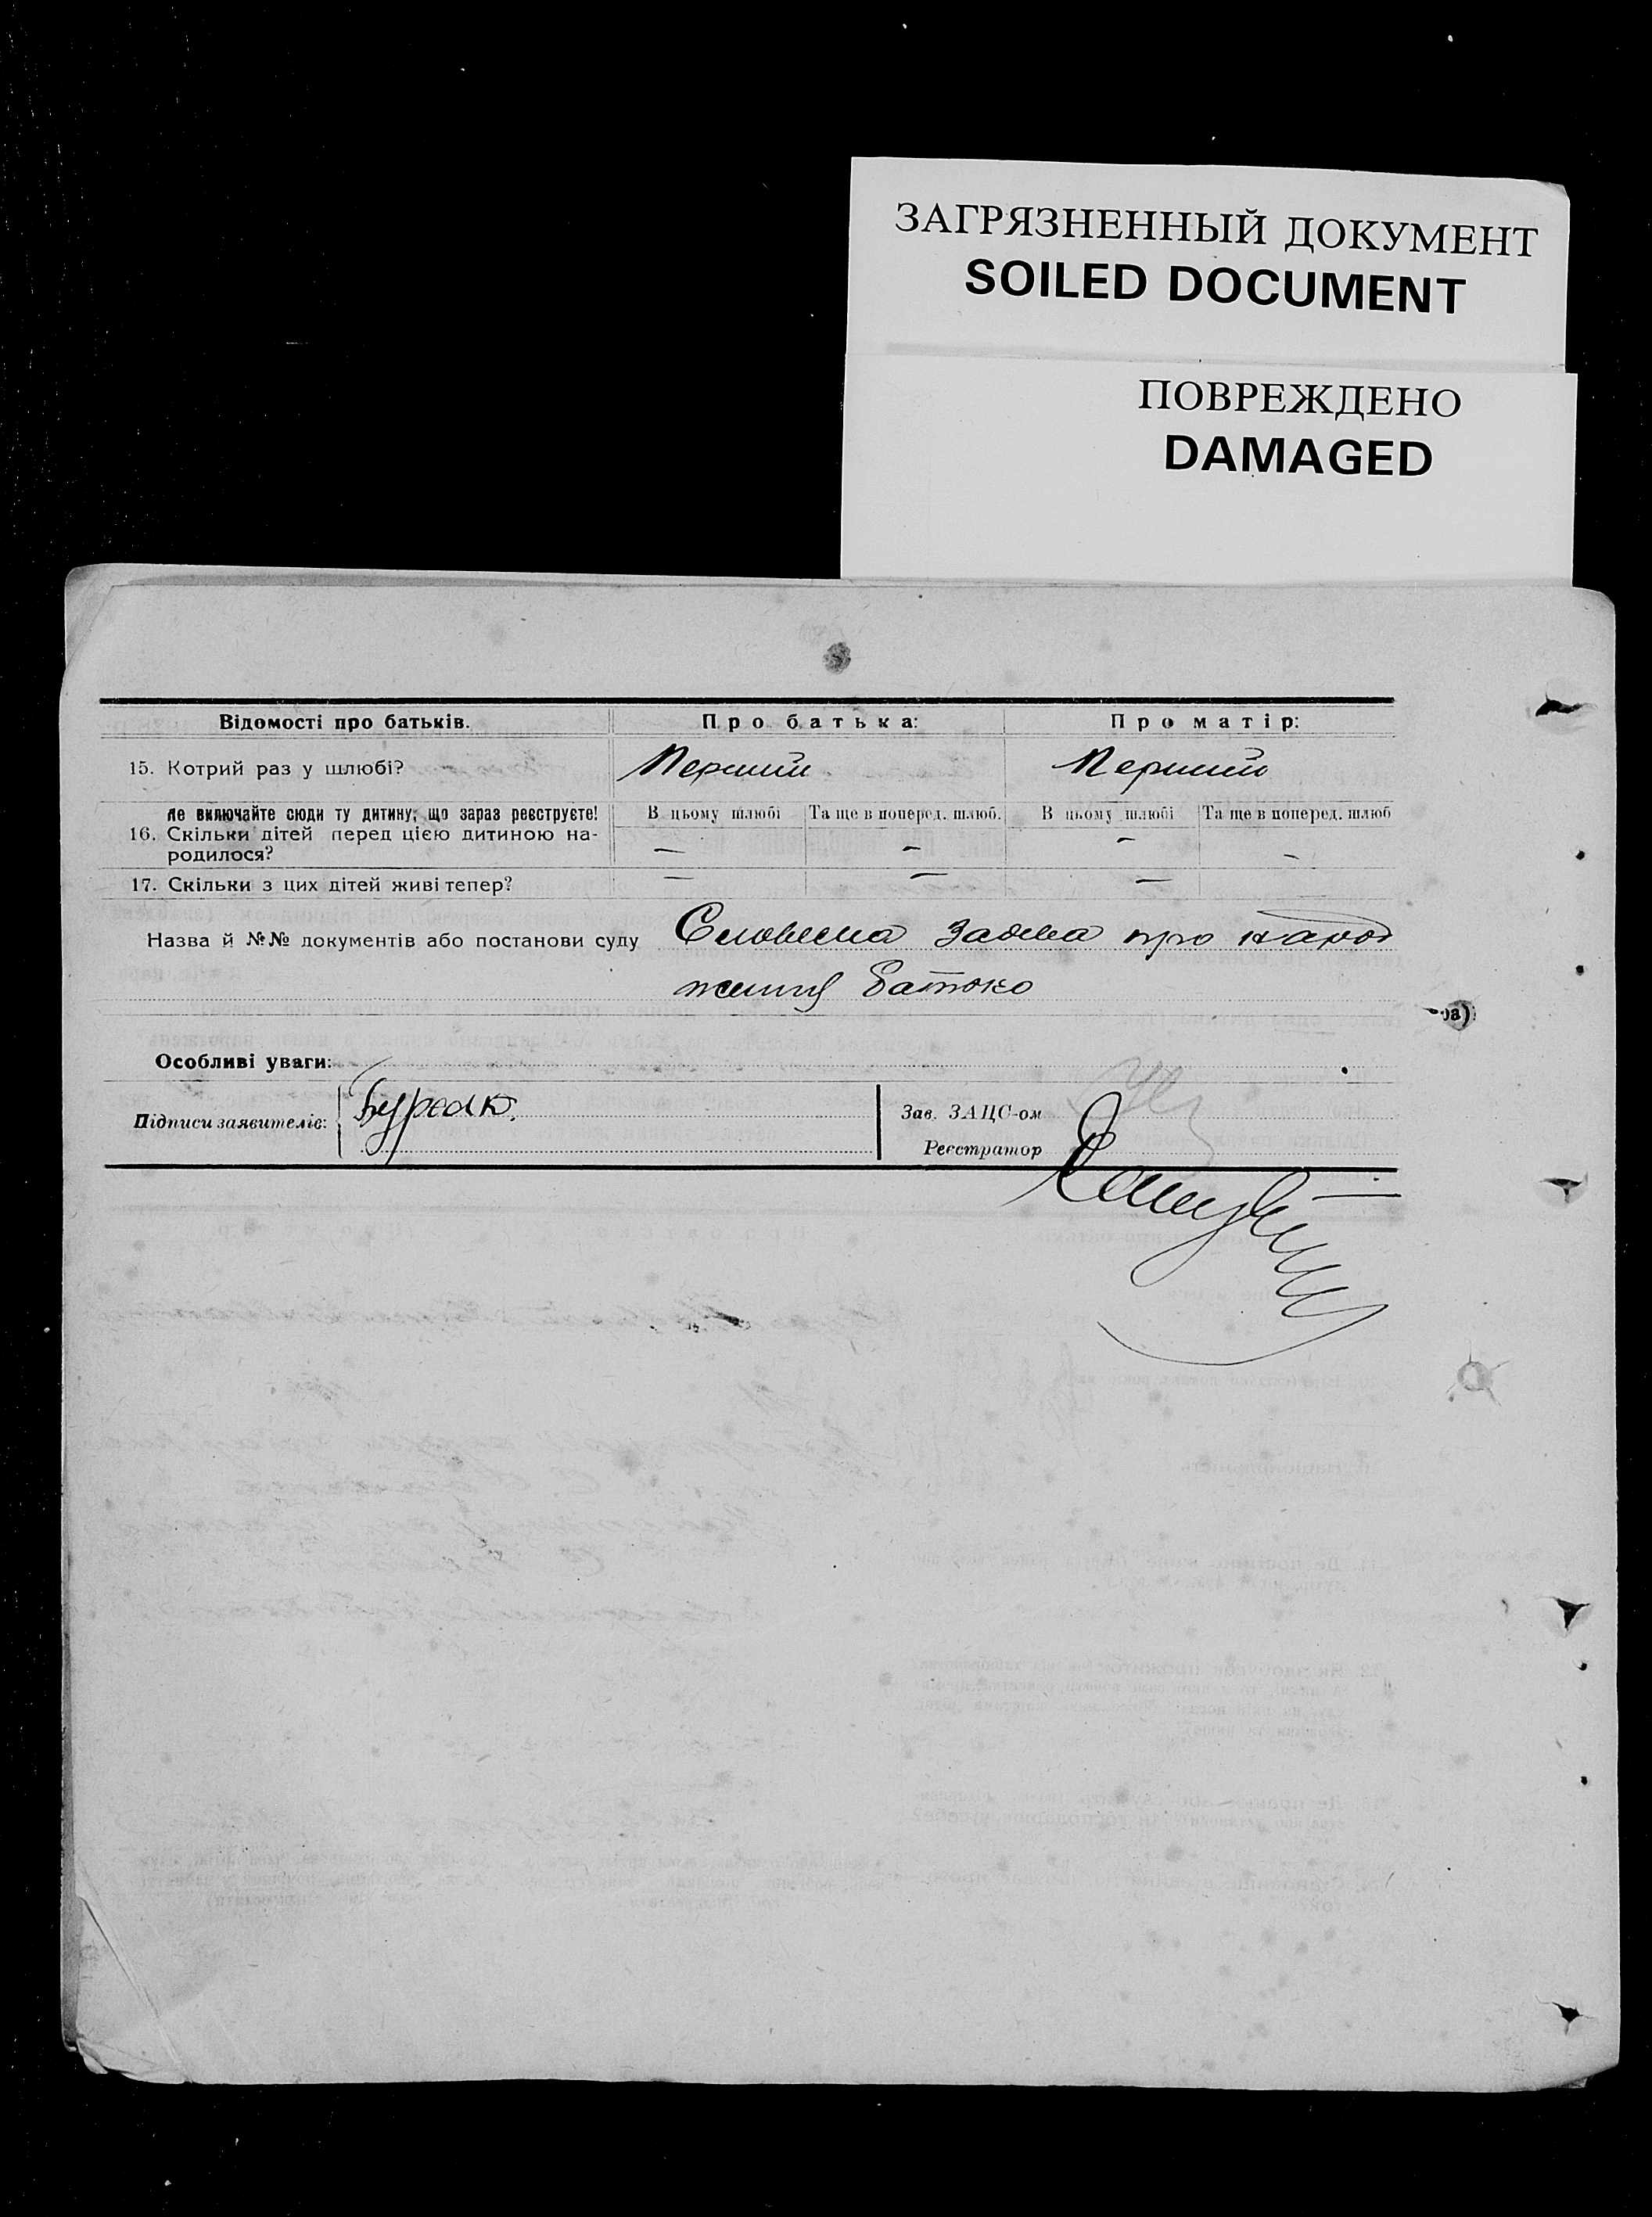 ЗАГРЯЗНЕННЫЙ ДОКУМЕНТ
SOILED DOCUMENT
ПОВРЕЖДЕНО
DAMAGED
Відомості про батьків. Про батька: Про матір:
15. Котрий раз у шлюбі? Перший Перший
Не включайте сюди ту дитину, що зараз реєструєте! В цьому шлюбі Та ще в поперед. шлюб. В цьому шлюбі Та ще в поперед. шлюб
16. Скільки дітей перед цією дитиною на-
родилося? — — — —
17. Скільки з цих дітей живі тепер? — — —
Назва й №№ документів або постанови суду Словесна заява про народ
ження батько
ра)
Особливі уваги:
Підписи заявителів: Буряк.
Зав. ЗАЦС-ом
Реєстратор